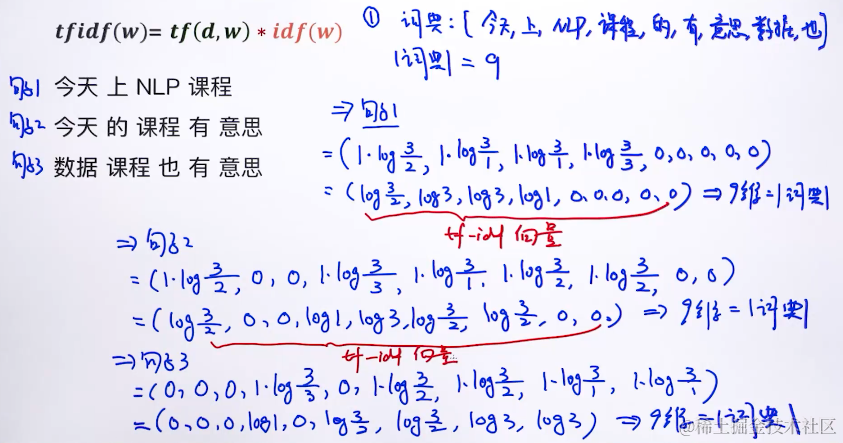 tfidf(w)= tf(d,w) * idf(w)
① 词典:[今天,上,NLP,课程,的,有,意思,数据,也]
|词典| = 9
句子1 今天 上 NLP 课程
句子2 今天 的 课程 有 意思
句子3 数据 课程 也 有 意思
⇒ 句子1
= (1·log 3/2, 1·log 3/1, 1·log 3/1, 1·log 3/3, 0, 0, 0, 0, 0)
= (log 3/2, log3, log3, log1, 0, 0, 0, 0, 0) ⇒ 9维=|词典|
tf-idf 向量
⇒ 句子2
= (1·log 3/2, 0, 0, 1·log 3/3, 1·log 3/1, 1·log 3/2, 1·log 3/2, 0, 0)
= (log 3/2, 0, 0, log1, log3, log 3/2, log 3/2, 0, 0.) ⇒ 9维=|词典|
tf-idf 向量
⇒ 句子3
= (0, 0, 0, 1·log 3/3, 0, 1·log 3/2, 1·log 3/2, 1·log 3/1, 1·log 3/1)
= (0, 0, 0, log1, 0, log 3/2, log 3/2, log3, log3) ⇒ 9维=|词典|
@稀土掘金技术社区